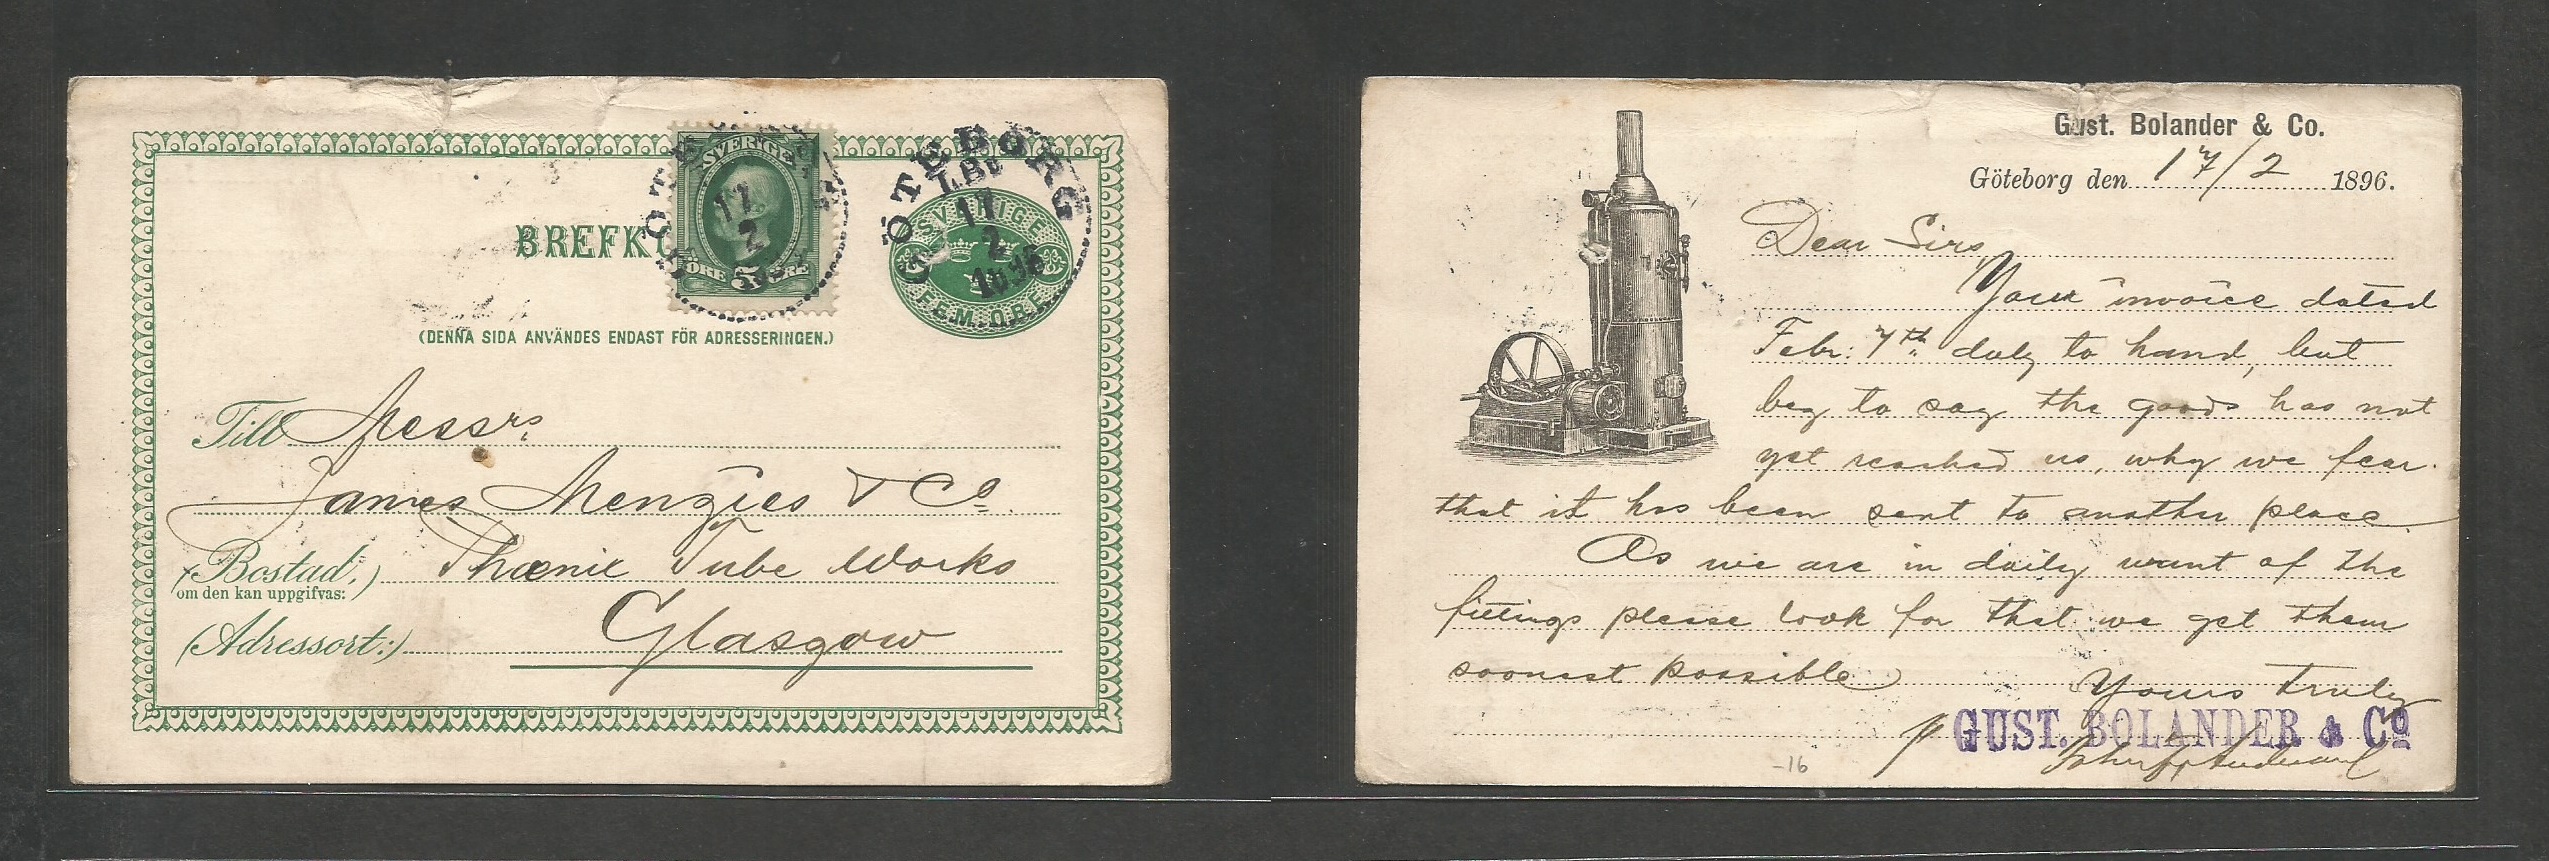 BREFKO
SVERIGE
17
2
ÖRE 5 ÖRE
GÖTEBORG
LBR
17
2
1896
SVERIGE
FEM ÖRE
(DENNA SIDA ANVÄNDES ENDAST FÖR ADRESSERINGEN.)
Till Messrs.
James Menzies & Co.
(Bostad,) Phœnix Tube Works
om den kan uppgifvas:
(Adressort:) Glasgow
Gust. Bolander & Co.
Göteborg den 17/2 1896.
Dear Sirs,
Your invoice dated
Febr: 7th. duly to hand, but
beg to say the goods has not
yet reached us, why we fear
that it has been sent to another place.
As we are in daily want of the
fittings please look for that we get them
soonest possible
Yours truly
p GUST. BOLANDER & Co
-16